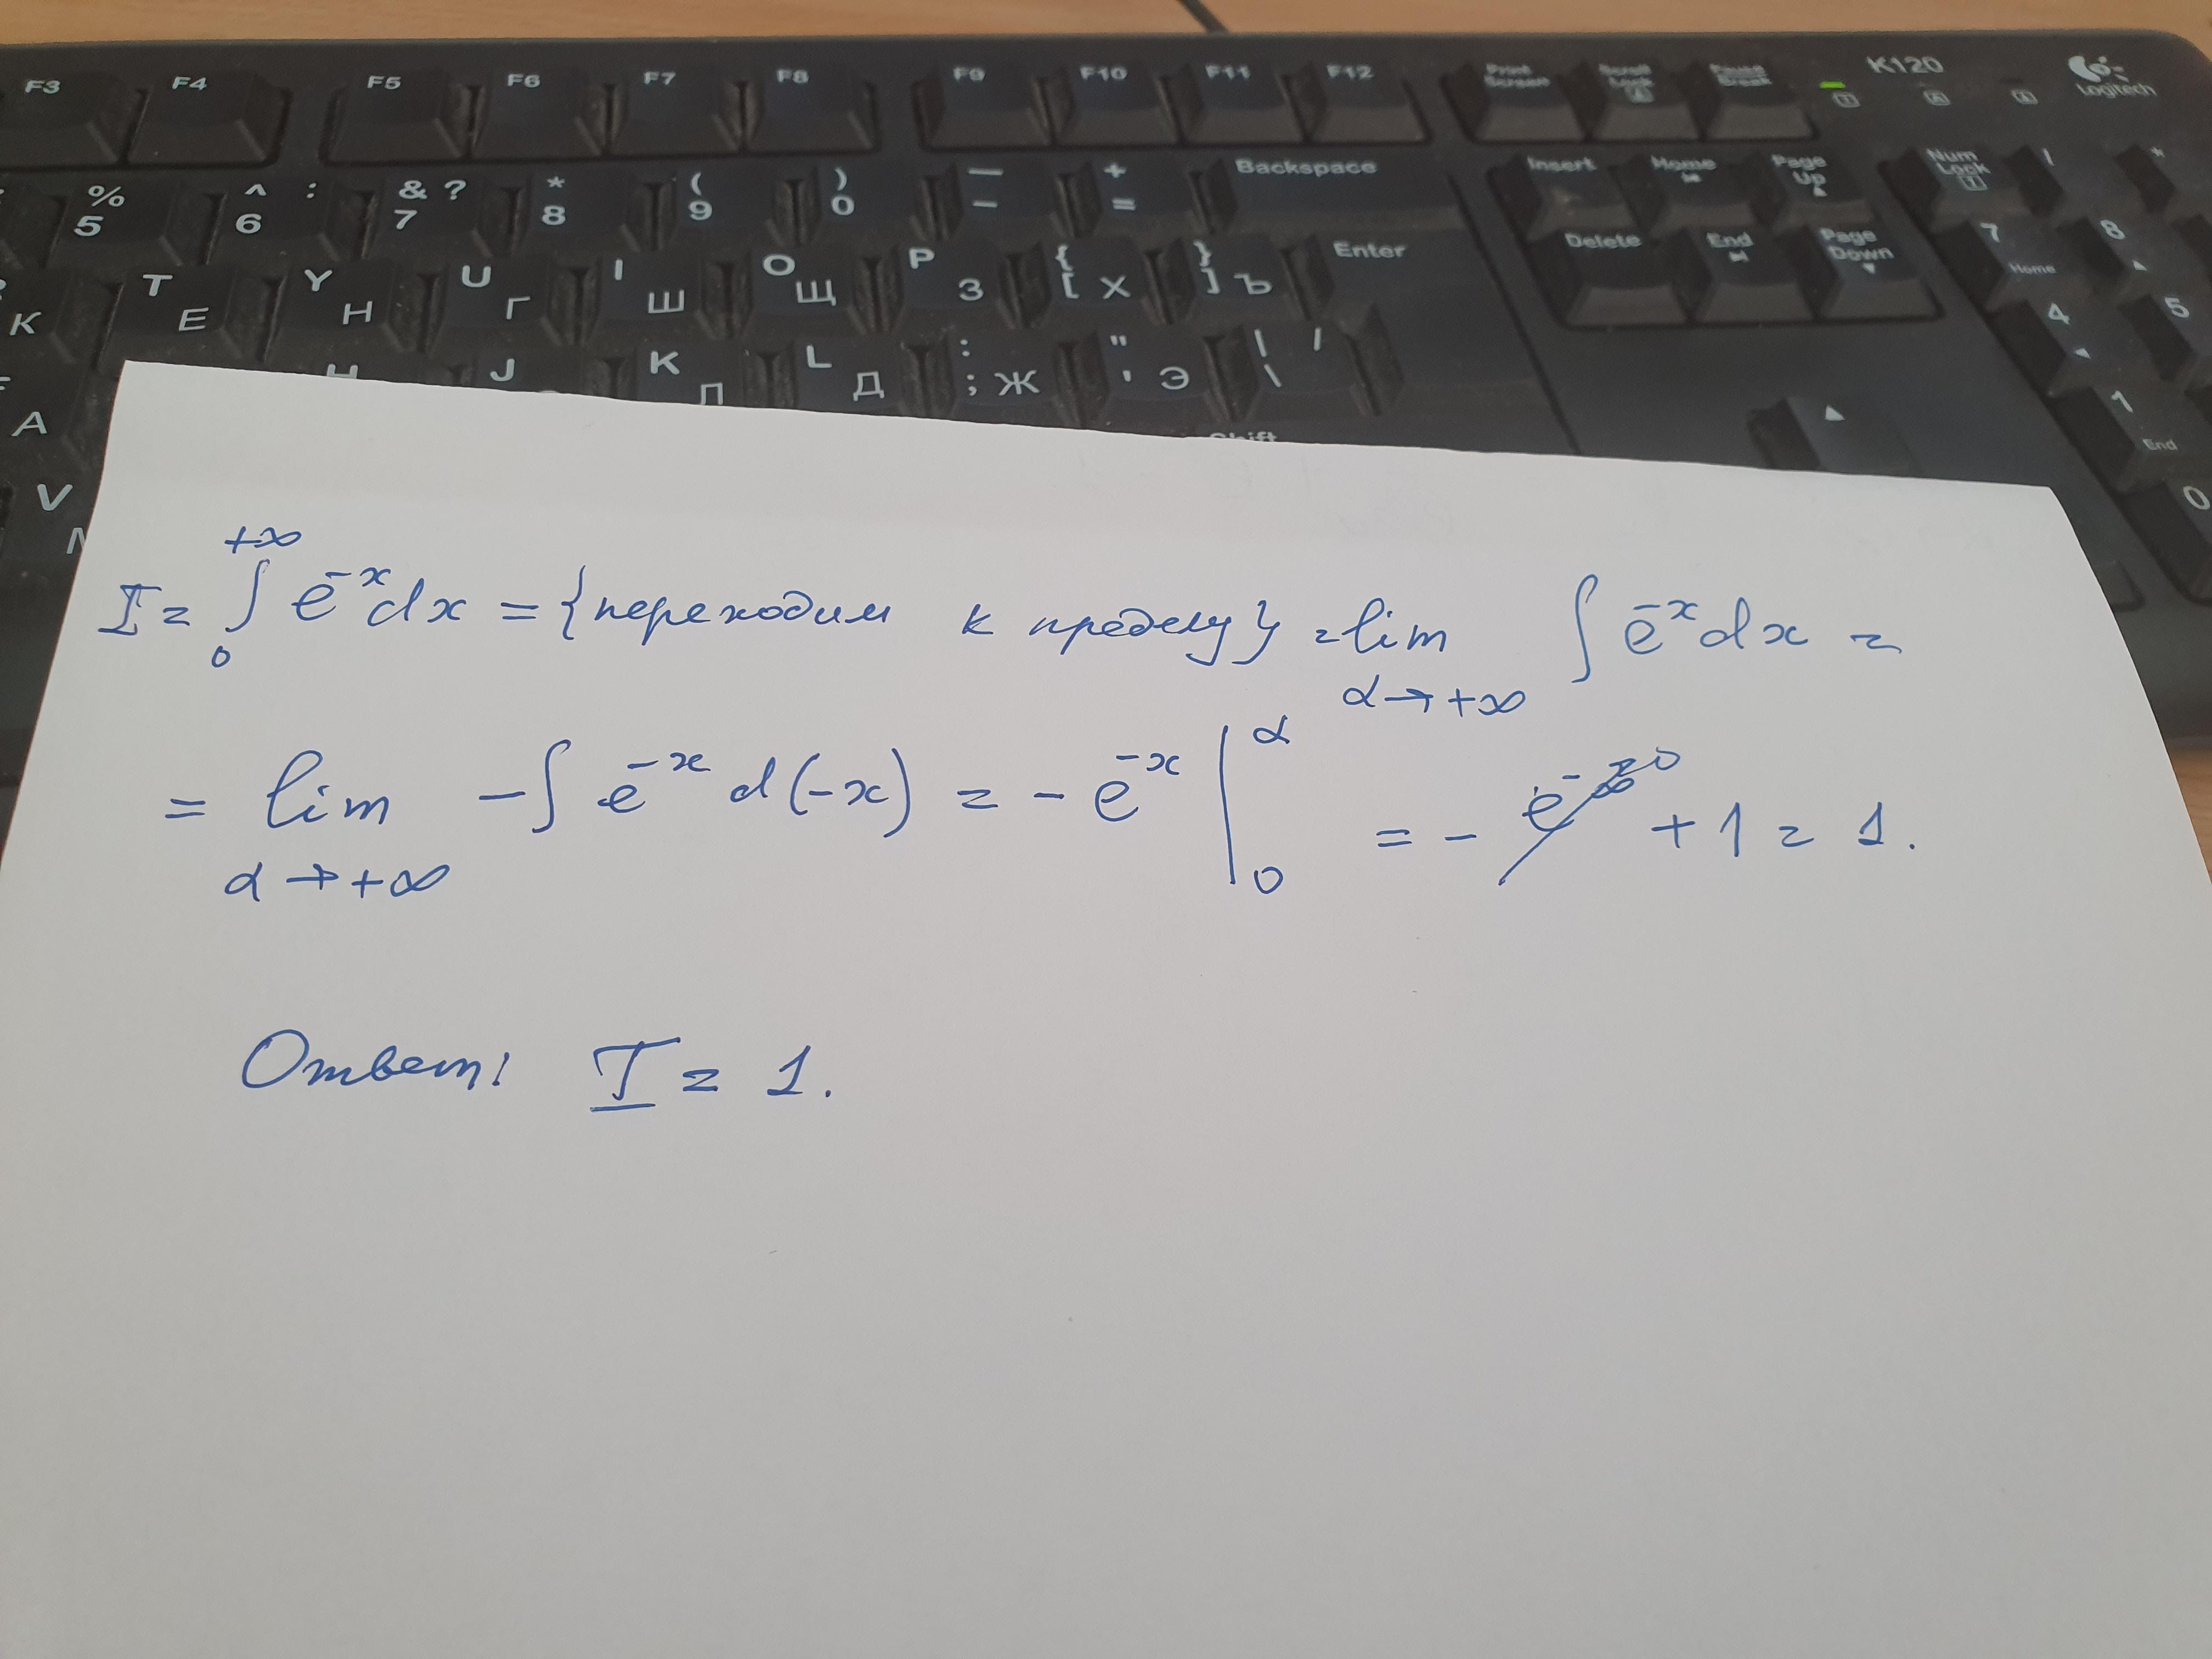 F3 F4 F5 F6 F7 F8 F9 F10 F11 F12 Print Screen Scroll Lock Pause Break K120 Logitech
% 5 ^ : 6 & ? 7 * 8 ( 9 ) 0 — - + = Backspace Insert Home Page Up Num Lock / *
К T Е Y Н U Г I Ш O Щ P З { [ Х } ] Ъ Enter Delete End Page Down 7 Home 8
А J K Л L Д : ; Ж " ' Э | \ / 4 5
V Shift 1 End 0
I = ∫₀^{+∞} e^{-x}dx = {переходим к пределу} = lim_{α→+∞} ∫ e^{-x}dx =
= lim_{α→+∞} -∫ e^{-x} d(-x) = -e^{-x} |₀^α = - e^{-∞} ⁰ + 1 = 1.
Ответ: I = 1.